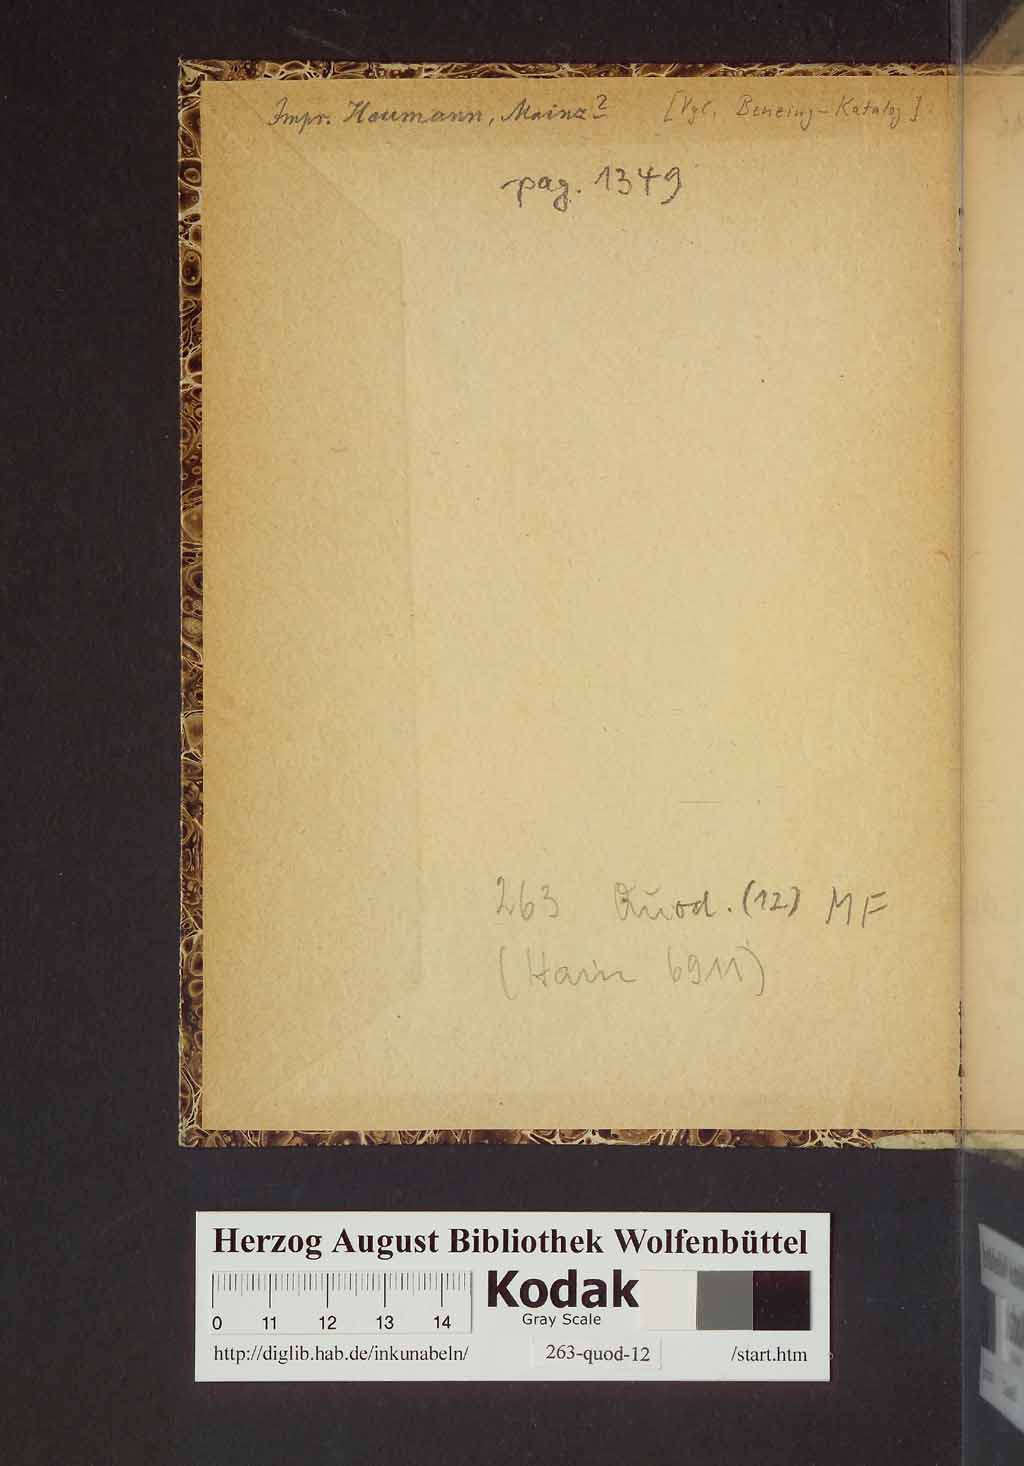 Impr. Heumann, Mainz?
[Vgl. Benzing-Katalog]
pag. 1349
263 Quod. (12) MF
(Hain 6911)
Herzog August Bibliothek Wolfenbüttel
0 11 12 13 14
Kodak
Gray Scale
http://diglib.hab.de/inkunabeln/ 263-quod-12 /start.htm